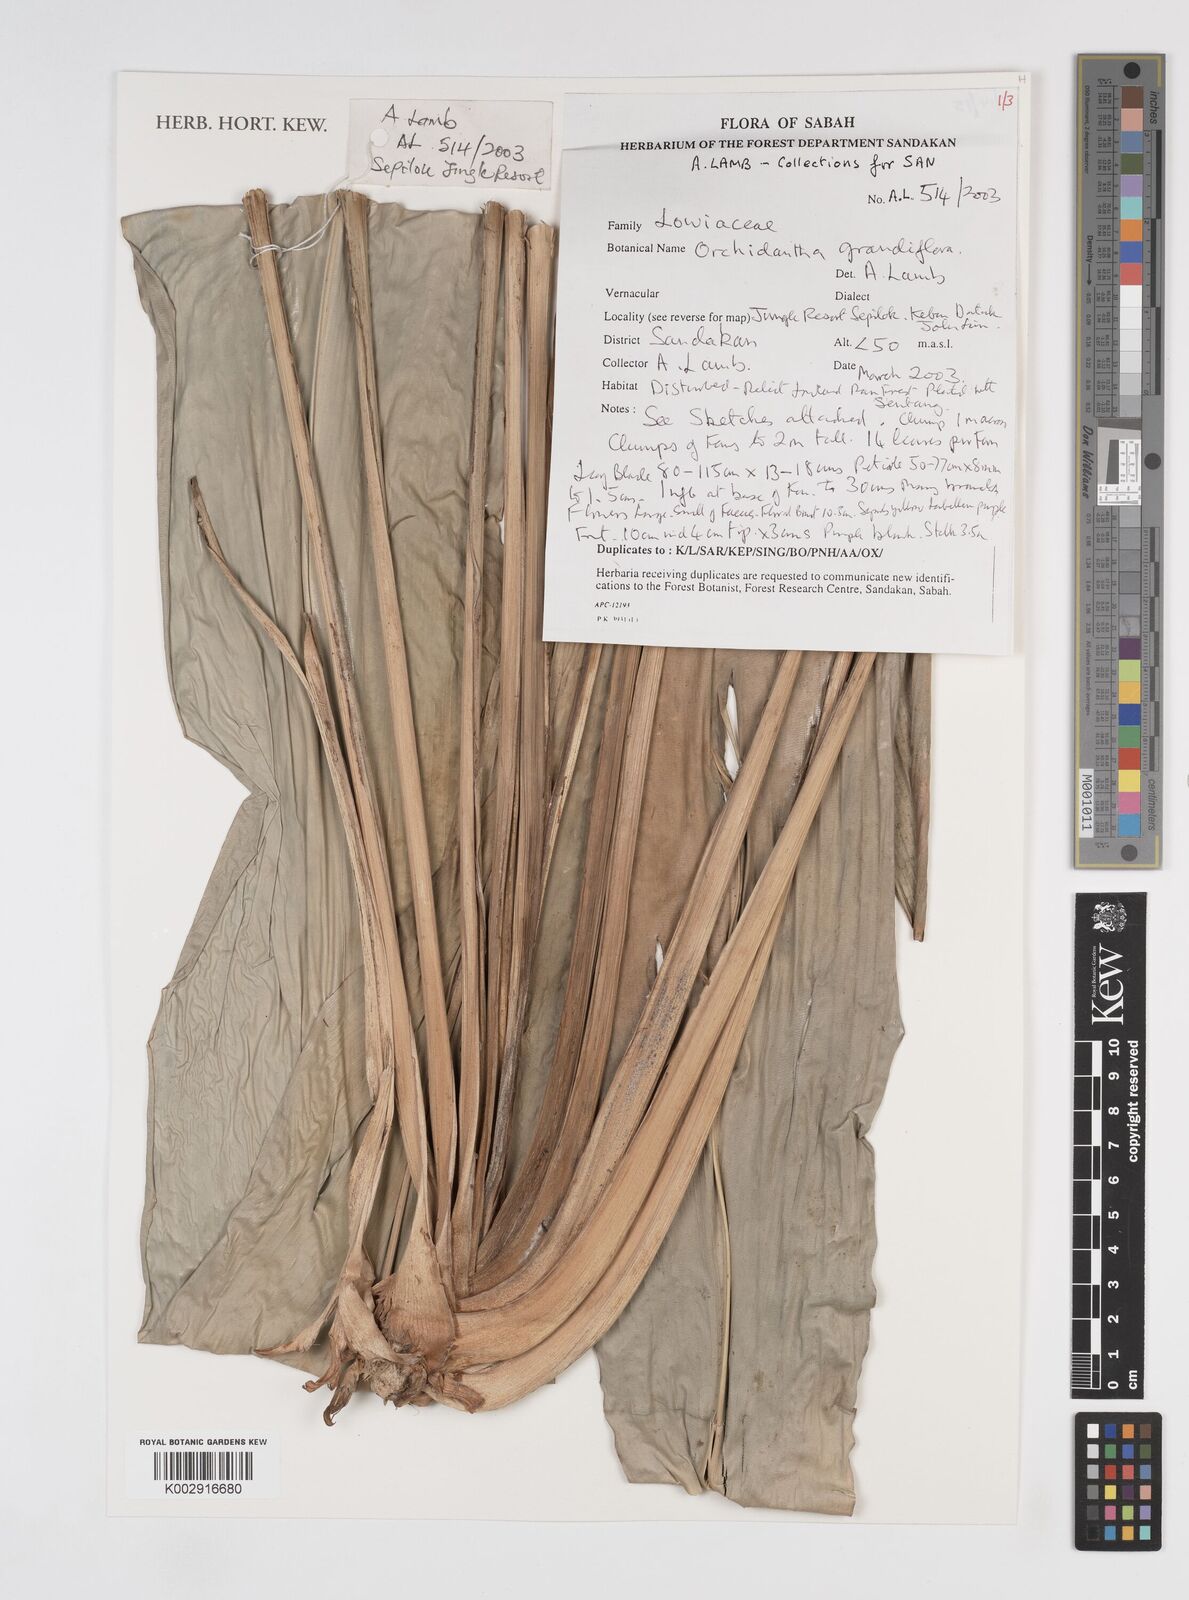 HERB. HORT. KEW.
A Lamb
AL 514/2003
Sepilok Jungle Resort
H
1/3
FLORA OF SABAH
HERBARIUM OF THE FOREST DEPARTMENT SANDAKAN
A. LAMB - Collections for SAN
No. A.L. 514/2003
Family Lowiaceae
Botanical Name Orchidantha grandiflora.
Det. A. Lamb
Vernacular Dialect
Locality (see reverse for map) Jungle Resort Sepilok. Kebun Datuk
John Lim.
District Sandakan Alt. <50 m.a.s.l.
Collector A. Lamb. Date March 2003.
Habitat Disturbed - Relict Rain Forest Planted with
Sentang.
Notes : See Sketches attached. Clump 1 m across
Clumps of Fans to 2m tall. 14 leaves per Fan
Leaf Blade 80-115cm x 13-18cms Petiole 50-77cm x 8mm
to 1.5cm. Infl at base of Fan. to 30cms many branches
Flowers Large. Smell of Faeces. Floral Bract 10.5cm. Sepals yellow Labellum purple
Fruit. 10cm incl 4cm tip. x 3cms Purple black. Stalk 3.5cm
Duplicates to : K/L/SAR/KEP/SING/BO/PNH/AA/OX/
Herbaria receiving duplicates are requested to communicate new identifi-
cations to the Forest Botanist, Forest Research Centre, Sandakan, Sabah.
ROYAL BOTANIC GARDENS KEW
K002916680
inches
Don Williams
M001011
centimeters
Royal Botanic Gardens
Kew
copyright reserved
0 1 2 3 4 5 6 7 8 9 10
cm